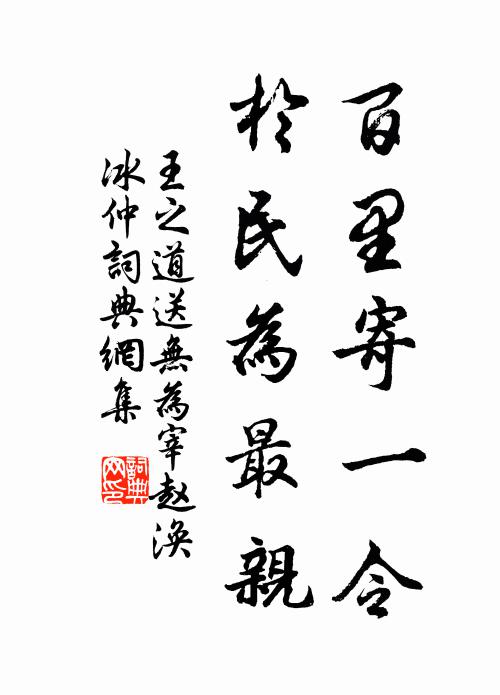 百里寄一令
於民為最親
王之道送無為宰赵渙
冰仲詞典網集
詞典网印